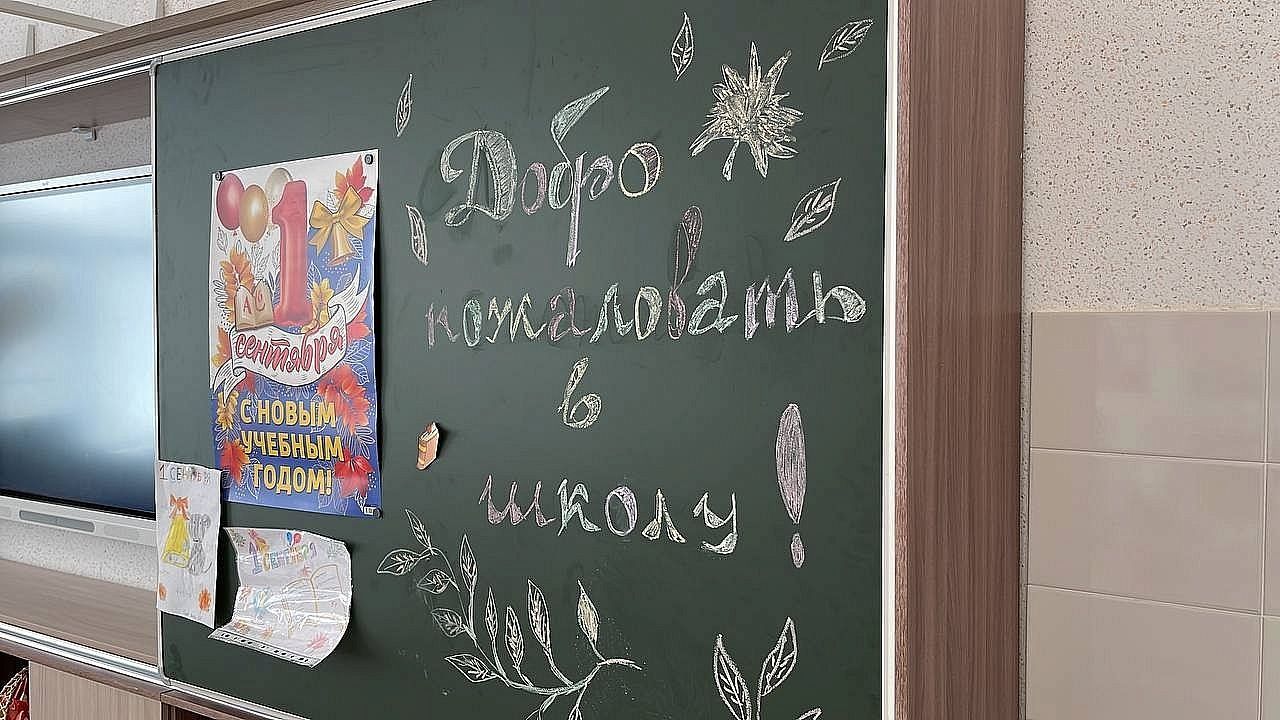 Добро
пожаловать
в
школу!
1
сентября
С НОВЫМ
УЧЕБНЫМ
ГОДОМ!
1 СЕНТЯБРЯ
1 СЕНТЯБРЯ